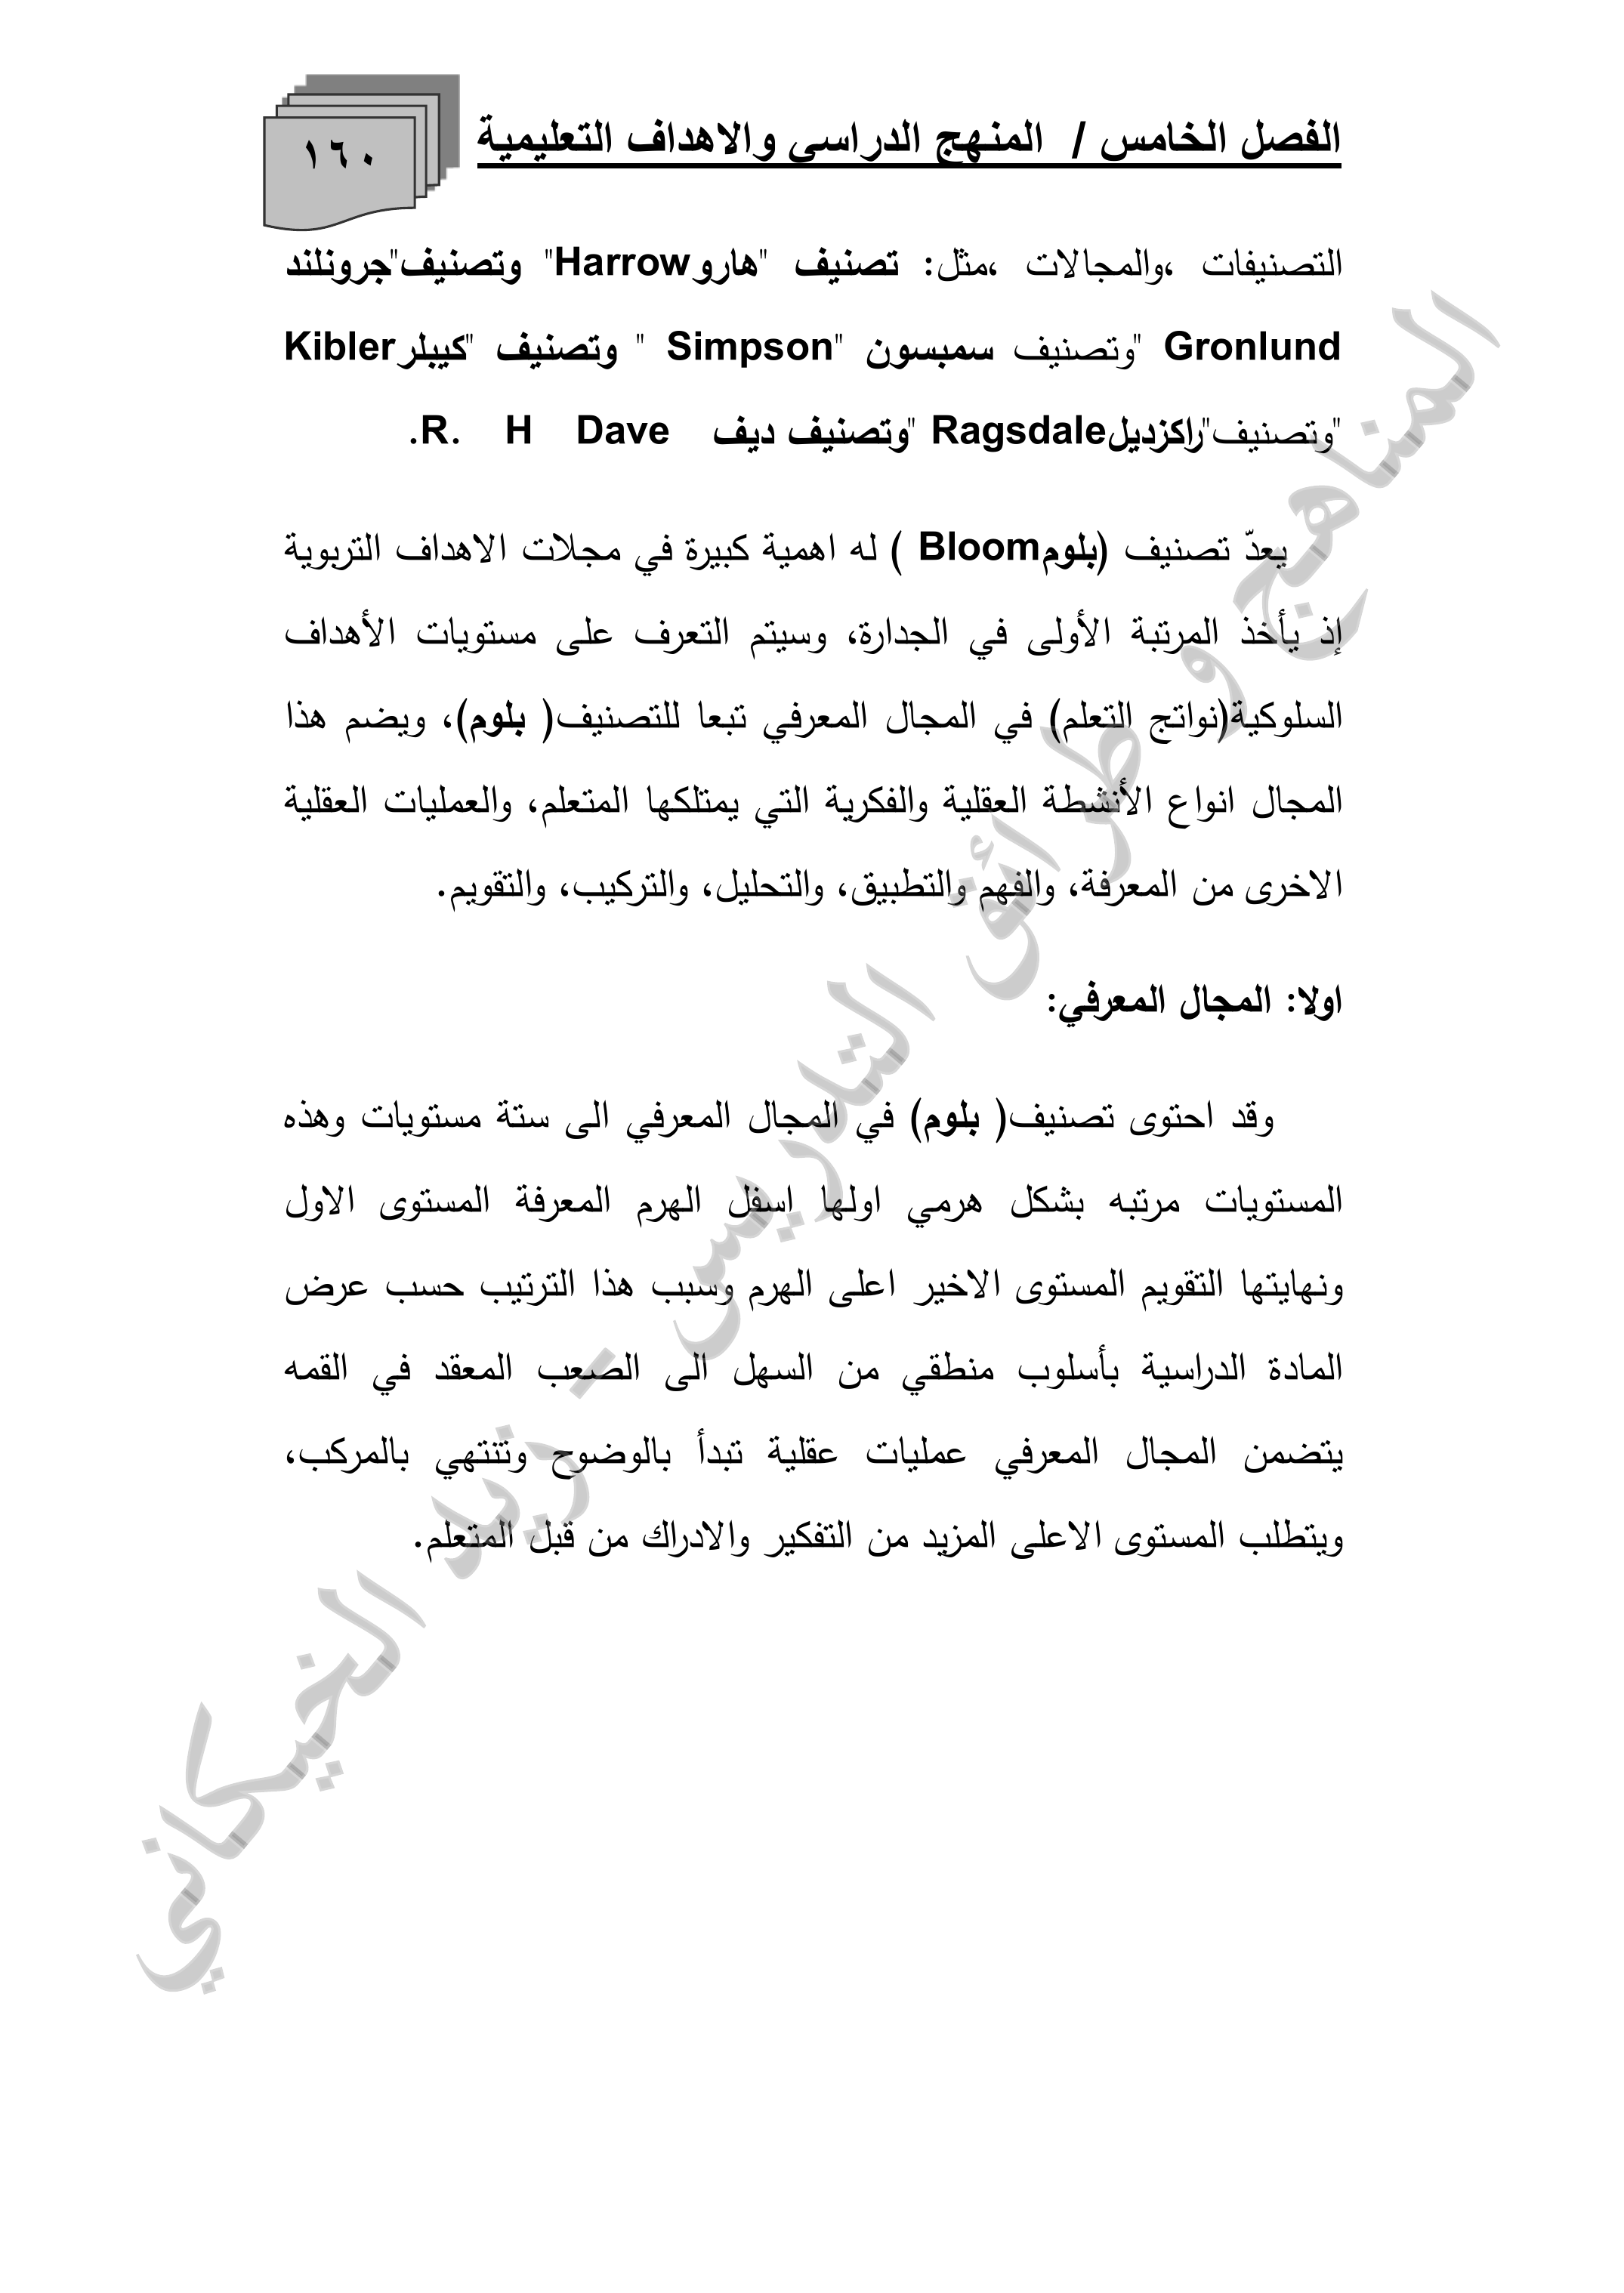 الفصل الخامس / المنهج الدراسي والاهداف التعليمية
١٦٠
التصنيفات ،والمجالات ،مثل: تصنيف "هاروHarrow" وتصنيف"جرونلند
Gronlund "وتصنيف سمبسون "Simpson " وتصنيف "كيبلرKibler
"وتصنيف"راكزديلRagsdale "وتصنيف ديف R. H Dave.
يعدّ تصنيف (بلومBloom ) له اهمية كبيرة في مجلات الاهداف التربوية
إذ يأخذ المرتبة الأولى في الجدارة، وسيتم التعرف على مستويات الأهداف
السلوكية(نواتج التعلم) في المجال المعرفي تبعا للتصنيف( بلوم)، ويضم هذا
المجال انواع الأنشطة العقلية والفكرية التي يمتلكها المتعلم، والعمليات العقلية
الاخرى من المعرفة، والفهم والتطبيق، والتحليل، والتركيب، والتقويم.
اولا: المجال المعرفي:
وقد احتوى تصنيف( بلوم) في المجال المعرفي الى ستة مستويات وهذه
المستويات مرتبه بشكل هرمي اولها اسفل الهرم المعرفة المستوى الاول
ونهايتها التقويم المستوى الاخير اعلى الهرم وسبب هذا الترتيب حسب عرض
المادة الدراسية بأسلوب منطقي من السهل الى الصعب المعقد في القمه
يتضمن المجال المعرفي عمليات عقلية تبدأ بالوضوح وتنتهي بالمركب،
ويتطلب المستوى الاعلى المزيد من التفكير والادراك من قبل المتعلم.
المناهج و طرائق التدريس - زيد الخيكاني